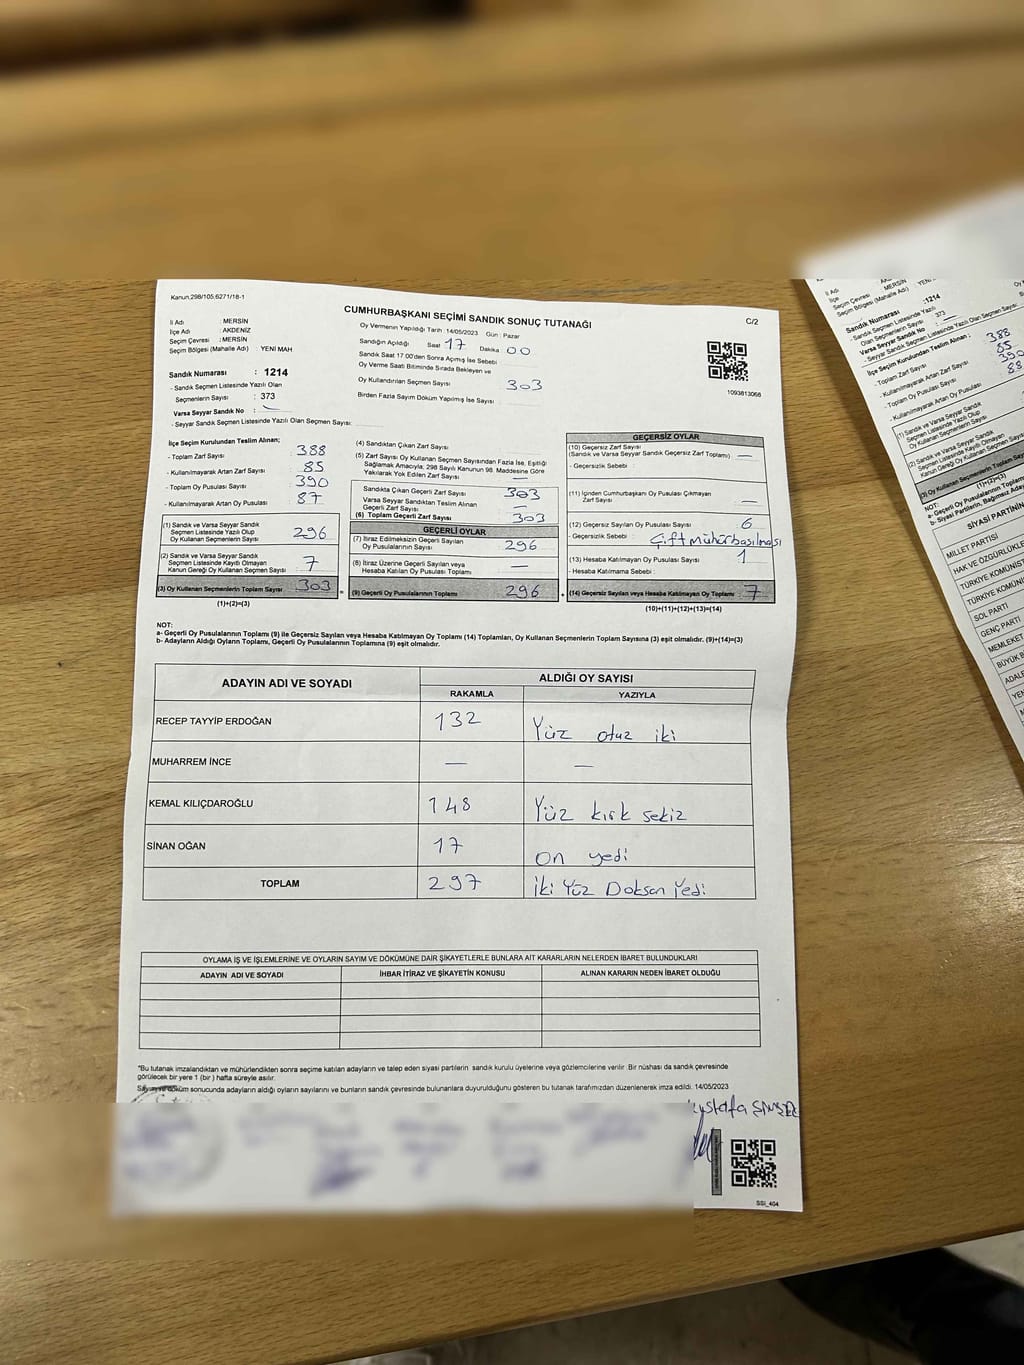 Kanun,298/105,6271/18-1
CUMHURBAŞKANI SEÇİMİ SANDIK SONUÇ TUTANAĞI
C/2
İl Adı : MERSİN
İlçe Adı : AKDENİZ
Seçim Çevresi : MERSİN
Seçim Bölgesi (Mahalle Adı) : YENİ MAH
Oy Vermenin Yapıldığı Tarih : 14/05/2023 Gün : Pazar
Sandığın Açıldığı Saat 17 Dakika 00
Sandık Saat 17.00'den Sonra Açmış İse Sebebi :
Oy Verme Saati Bitiminde Sırada Bekleyen ve
Oy Kullandırılan Seçmen Sayısı 303
Birden Fazla Sayım Döküm Yapılmış İse Sayısı :
1093813068
Sandık Numarası : 1214
- Sandık Seçmen Listesinde Yazılı Olan
Seçmen Sayısı : 373
Varsa Seyyar Sandık No :
- Seyyar Sandık Seçmen Listesinde Yazılı Olan Seçmen Sayısı:
İlçe Seçim Kurulundan Teslim Alınan;
- Toplam Zarf Sayısı : 388
- Kullanılmayarak Artan Zarf Sayısı : 85
- Toplam Oy Pusulası Sayısı : 390
- Kullanılmayarak Artan Oy Pusulası : 87
(1) Sandık ve Varsa Seyyar Sandık
Seçmen Listesinde Yazılı Olup
Oy Kullanan Seçmenlerin Sayısı : 296
(2) Sandık ve Varsa Seyyar Sandık
Seçmen Listesinde Kayıtlı Olmayan
Kanun Gereği Oy Kullanan Seçmen Sayısı : 7
(3) Oy Kullanan Seçmenlerin Toplam Sayısı : 303
(1)+(2)=(3)
(4) Sandıktan Çıkan Zarf Sayısı :
(5) Zarf Sayısı Oy Kullanan Seçmen Sayısından Fazla İse, Eşitliği
Sağlamak Amacıyla, 298 Sayılı Kanunun 98. Maddesine Göre
Yakılarak Yok Edilen Zarf Sayısı : —
Sandıkta Çıkan Geçerli Zarf Sayısı : 303
Varsa Seyyar Sandıktan Teslim Alınan
Geçerli Zarf Sayısı : —
(6) Toplam Geçerli Zarf Sayısı : 303
GEÇERLİ OYLAR
(7) İtiraz Edilmeksizin Geçerli Sayılan
Oy Pusulalarının Sayısı : 296
(8) İtiraz Üzerine Geçerli Sayılan veya
Hesaba Katılan Oy Pusulası Toplamı : —
(9) Geçerli Oy Pusulalarının Toplamı : 296
GEÇERSİZ OYLAR
(10) Geçersiz Zarf Sayısı
(Sandık ve Varsa Seyyar Sandık Geçersiz Zarf Toplamı) —
- Geçersizlik Sebebi :
(11) İçinden Cumhurbaşkanı Oy Pusulası Çıkmayan
Zarf Sayısı : —
(12) Geçersiz Sayılan Oy Pusulası Sayısı : 6
- Geçersizlik Sebebi : Çift mühür basılması
(13) Hesaba Katılmayan Oy Pusulası Sayısı : 1
- Hesaba Katılmama Sebebi :
(14) Geçersiz Sayılan veya Hesaba Katılmayan Oy Toplamı : 7
(10)+(11)+(12)+(13)=(14)
NOT:
a- Geçerli Oy Pusulalarının Toplamı (9) ile Geçersiz Sayılan veya Hesaba Katılmayan Oy Toplamı (14) Toplamları, Oy Kullanan Seçmenlerin Toplam Sayısına (3) eşit olmalıdır. (9)+(14)=(3)
b- Adayların Aldığı Oyların Toplamı, Geçerli Oy Pusulalarının Toplamına (9) eşit olmalıdır.
ADAYIN ADI VE SOYADI ALDIĞI OY SAYISI
RAKAMLA YAZIYLA
RECEP TAYYİP ERDOĞAN 132 Yüz otuz iki
MUHARREM İNCE — —
KEMAL KILIÇDAROĞLU 148 Yüz kırk sekiz
SİNAN OĞAN 17 on yedi
TOPLAM 297 İki Yüz Doksan Yedi
OYLAMA İŞ VE İŞLEMLERİNE VE OYLARIN SAYIM VE DÖKÜMÜNE DAİR ŞİKAYETLERLE BUNLARA AİT KARARLARIN NELERDEN İBARET BULUNDUKLARI
ADAYIN ADI VE SOYADI İHBAR İTİRAZ VE ŞİKAYETİN KONUSU ALINAN KARARIN NEDEN İBARET OLDUĞU
"Bu tutanak imzalandıktan ve mühürlendikten sonra seçime katılan adayların ve talep eden siyasi partilerin sandık kurulu üyelerine veya gözlemcilerine verilir. Bir nüshası da sandık çevresinde
görülecek bir yere 1 (bir) hafta süreyle asılır.
Sayım ve döküm sonucunda adayların aldığı oyların sayılarını ve bunların sandık çevresinde bulunanlara duyurulduğunu gösteren bu tutanak tarafımızdan düzenlenerek imza edildi. 14/05/2023
SSI_404
İl Adı
İlçe
Seçim Çevresi : MERSİN
Seçim Bölgesi (Mahalle Adı) : YENİ
Sandık Numarası :1214
- Sandık Seçmen Listesinde Yazılı
Olan Seçmenlerin Sayısı : 373
Varsa Seyyar Sandık No :
- Seyyar Sandık Seçmen Listesinde Yazılı Olan Seçmen Sayısı:
İlçe Seçim Kurulundan Teslim Alınan ;
- Toplam Zarf Sayısı : 388
- Kullanılmayarak Artan Zarf Sayısı : 85
- Toplam Oy Pusulası Sayısı : 390
- Kullanılmayarak Artan Oy Pusulası
(1) Sandık ve Varsa Seyyar Sandık
Seçmen Listesinde Yazılı Olup
Oy Kullanan Seçmenlerin Sayısı
(2) Sandık ve Varsa Seyyar Sandık
Seçmen Listesinde Kayıtlı Olmayan
Kanun Gereği Oy Kullanan Seçmen
(3) Oy Kullanan Seçmenlerin Toplam
(1)+(2)=(3)
NOT:
SİYASİ PARTİNİN
MİLLET PARTİSİ
HAK VE ÖZGÜRLÜKLE
TÜRKİYE KOMÜNİS
TÜRKİYE KOMÜNİ
SOL PARTİ
GENÇ PARTİ
MEMLEKET
BÜYÜK B
ADALE
YEN